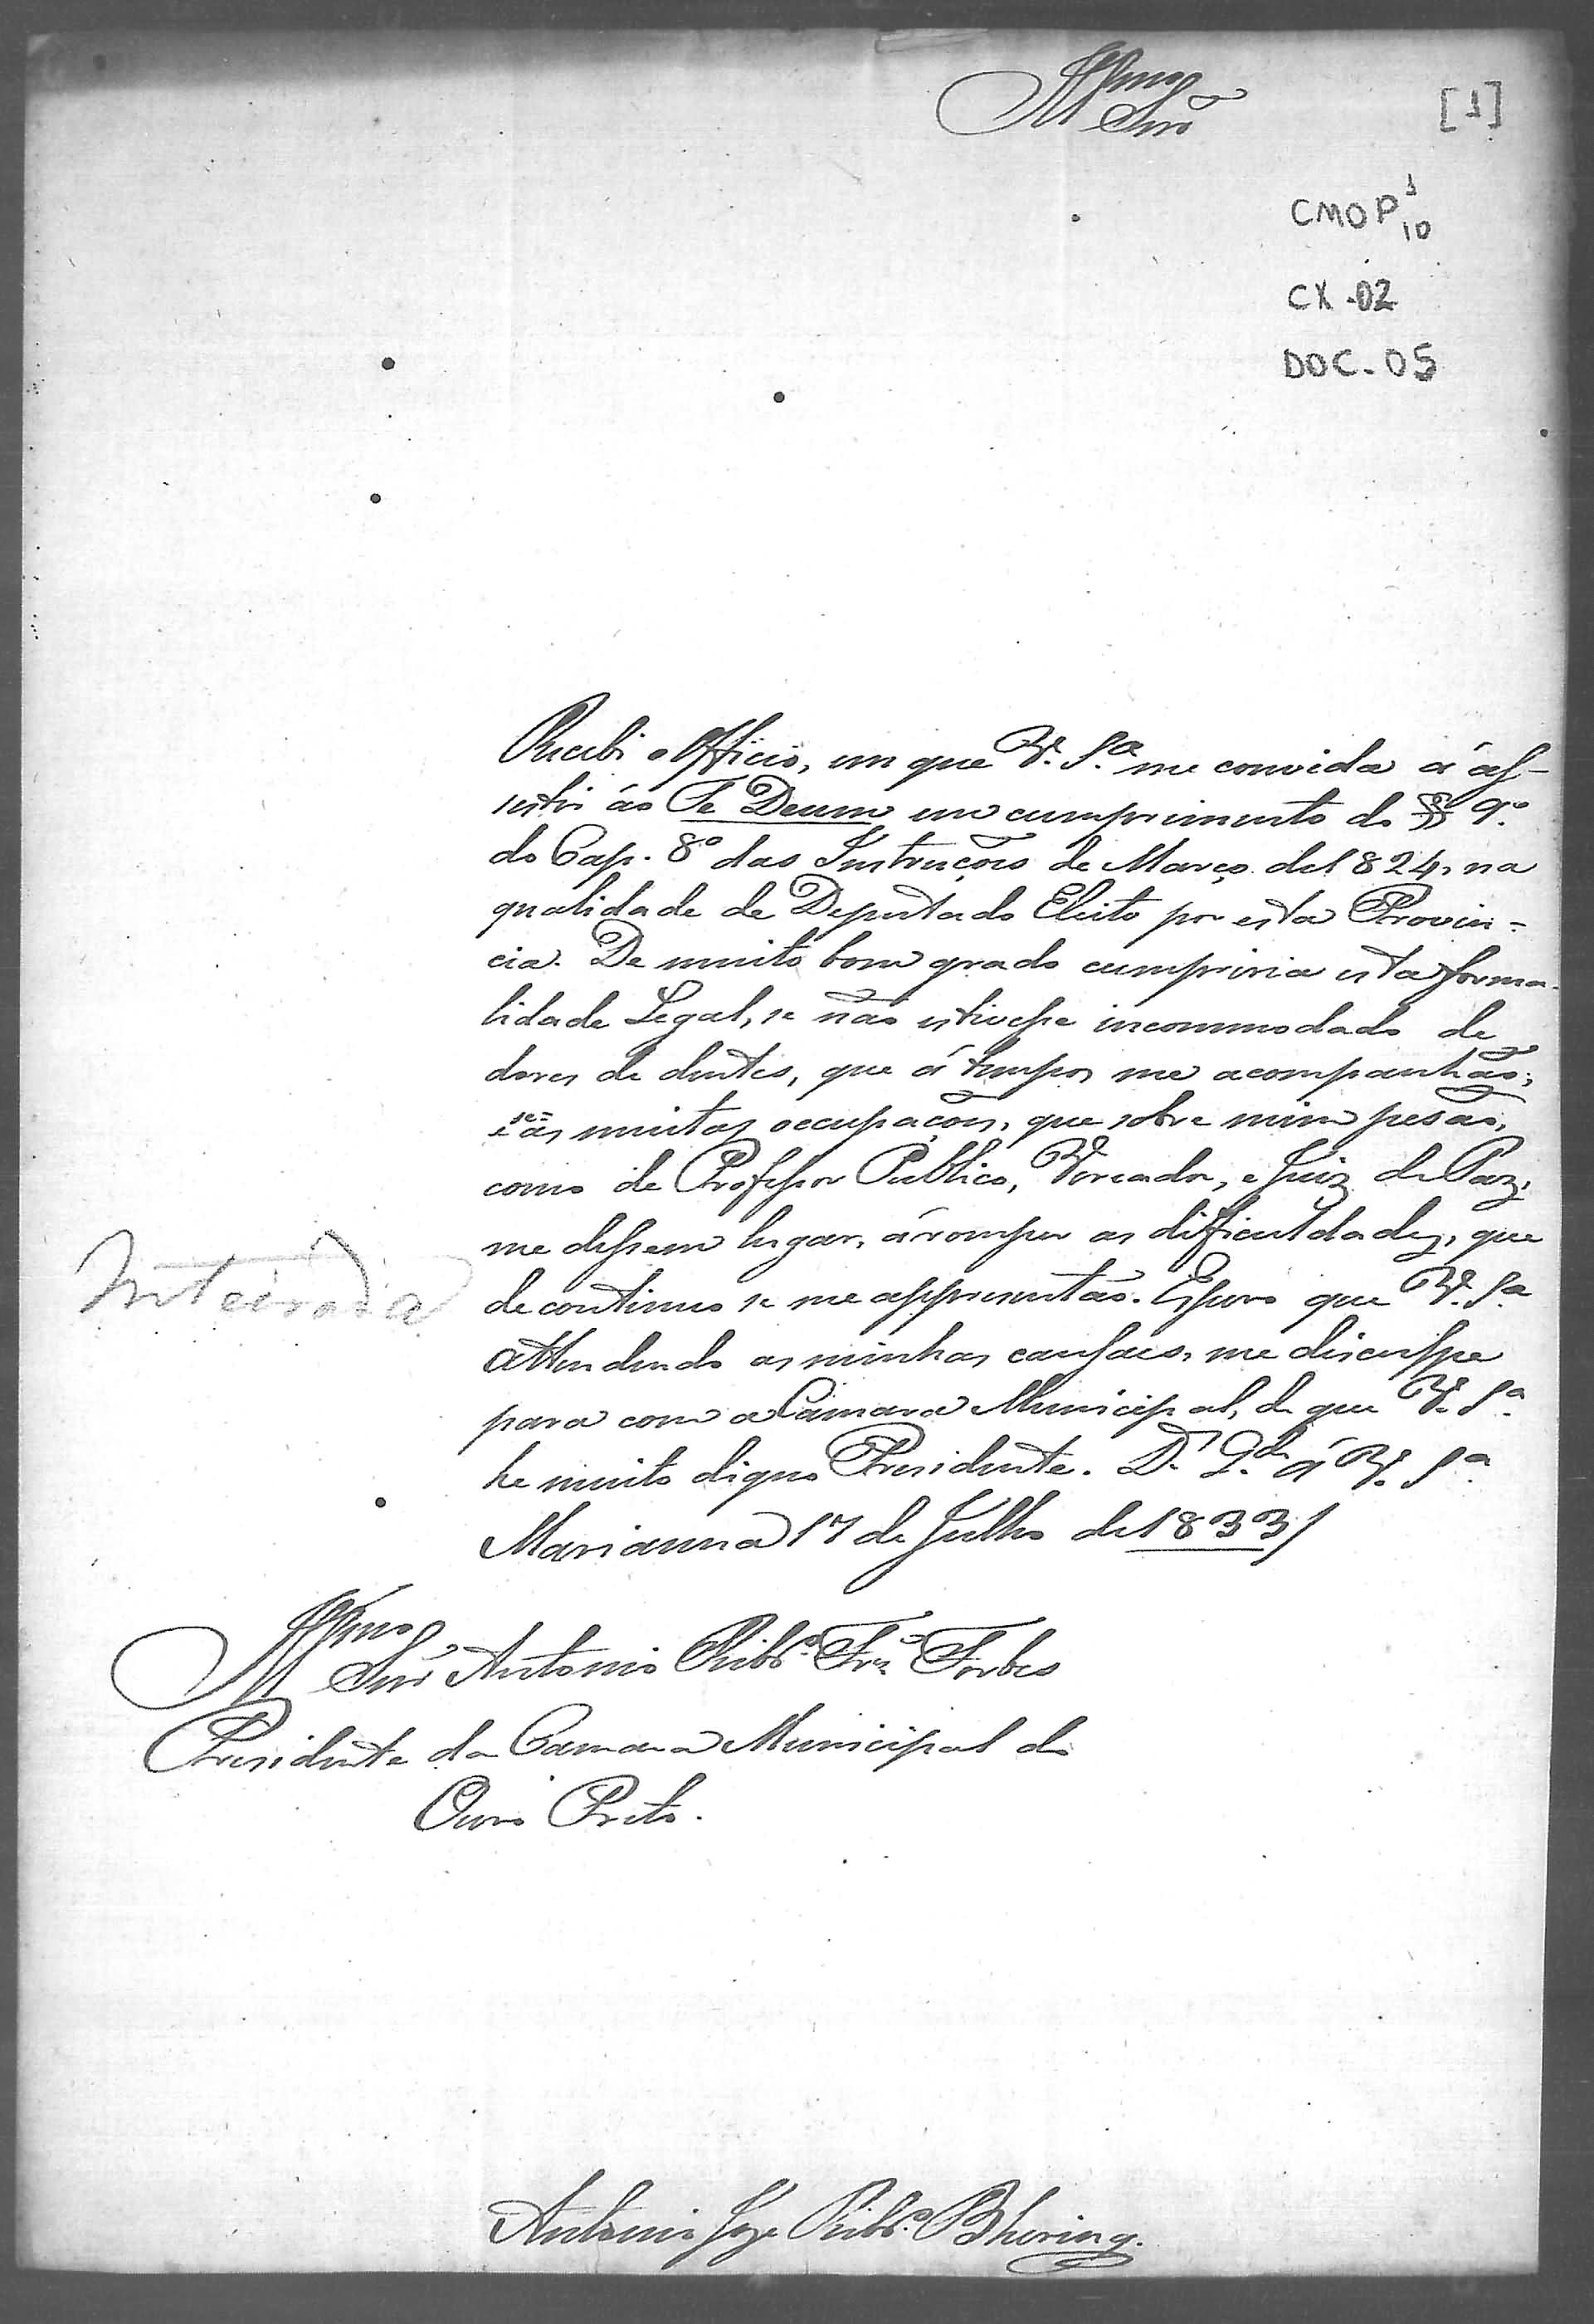 Illmo Snr
[1]
CMOP 1
10
CX-02
DOC-05
Recebi o Officio, em que V. S.ª me convida á as-
sistir ao Te Deum em cumprimento do § 9º
do Cap. 8º das Instrucções de Março de 1824, na
qualidade de Deputado Eleito por esta Provin-
cia. De muito bom grado cumpriria esta forma-
lidade Legal, se não estivesse incommodado de
dores de dentes, que á tempos me acompanhão;
e se as muitas occupações, que sobre mim pesão,
como de Professor Publico, Vereador, e Juiz de Paz,
me dessem lugar, á romper as difficuldades, que
de continuo se me appresentão. Espero que V. S.ª
attendendo as minhas causaes, me disculpe
para com a Camara Municipal, de que V. S.ª
he muito digno Presidente. D.s G.de á V. S.ª
Marianna 17 de Julho de 1833/
Inteirada
Illmo Snr Antonio Ribr.º Frz Forbes
Presidente da Camara Municipal do
Ouro Preto.
Antonio Joze Ribr.º Bhering.